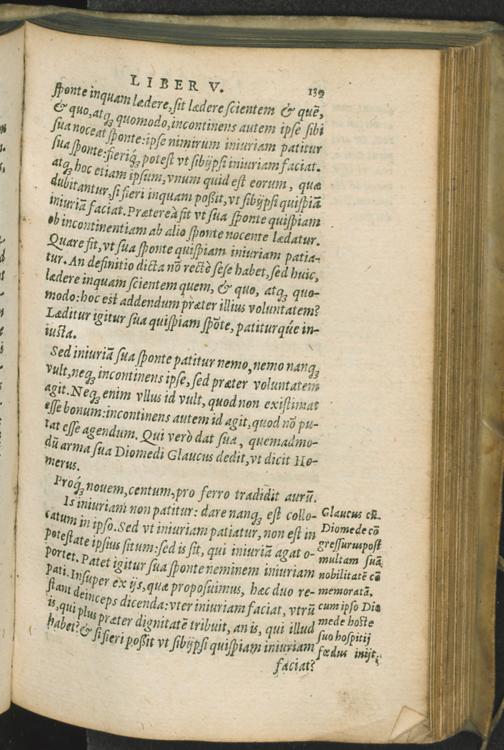 LIBER V. 139
sponte inquam lædere, sit lædere scientem & quē,
& quo, atq; quomodo, incontinens autem ipse sibi
sua noceat sponte: ipse nimirum iniuriam patitur
sua sponte: fieriq́; potest vt sibijpsi iniuriam faciat.
atq; hoc etiam ipsum, vnum quid est eorum, quæ
dubitantur, si fieri inquam poßit, vt sibijpsi quispiā
iniuriā faciat. Prætereà fit vt sua sponte quispiam
ob incontinentiam ab alio sponte nocente lædatur.
Quare fit, vt sua sponte quispiam iniuriam patia-
tur. An definitio dicta nō rectè sese habet, sed huic,
lædere inquam scientem quem, & quo, atq; quo-
modo: hoc est addendum præter illius voluntatem?
Læditur igitur sua quispiam spōte, patiturqúe in-
iusta.
Sed iniuriā sua sponte patitur nemo, nemo nanq;
vult, neq; incontinens ipse, sed præter voluntatem
agit. Neq; enim vllus id vult, quod non existimat
esse bonum: incontinens autem id agit, quod nō pu-
tat esse agendum. Qui verò dat sua, quemadmo-
dū arma sua Diomedi Glaucus dedit, vt dicit Ho-
merus.
Proq́; nouem, centum, pro ferro tradidit aurū.
Is iniuriam non patitur: dare nanq; est collo-
catum in ipso. Sed vt iniuriam patiatur, non est in
potestate ipsius situm: sed is sit, qui iniuriā agat o-
portet. Patet igitur sua sponte neminem iniuriam
pati. Insuper ex ijs, quæ proposuimus, hæc duo re-
stant deinceps dicenda: vter iniuriam faciat, vtrū
is, qui plus præter dignitatē tribuit, an is, qui illud
habet? & si fieri poßit vt sibijpsi quispiam iniuriam
faciat?
Glaucus cū
Diomede cō
gressurus post
multam suā
nobilitatē cō
memoratā,
cum ipso Dio
mede hoste
suo hospitij
fœdus inijt.